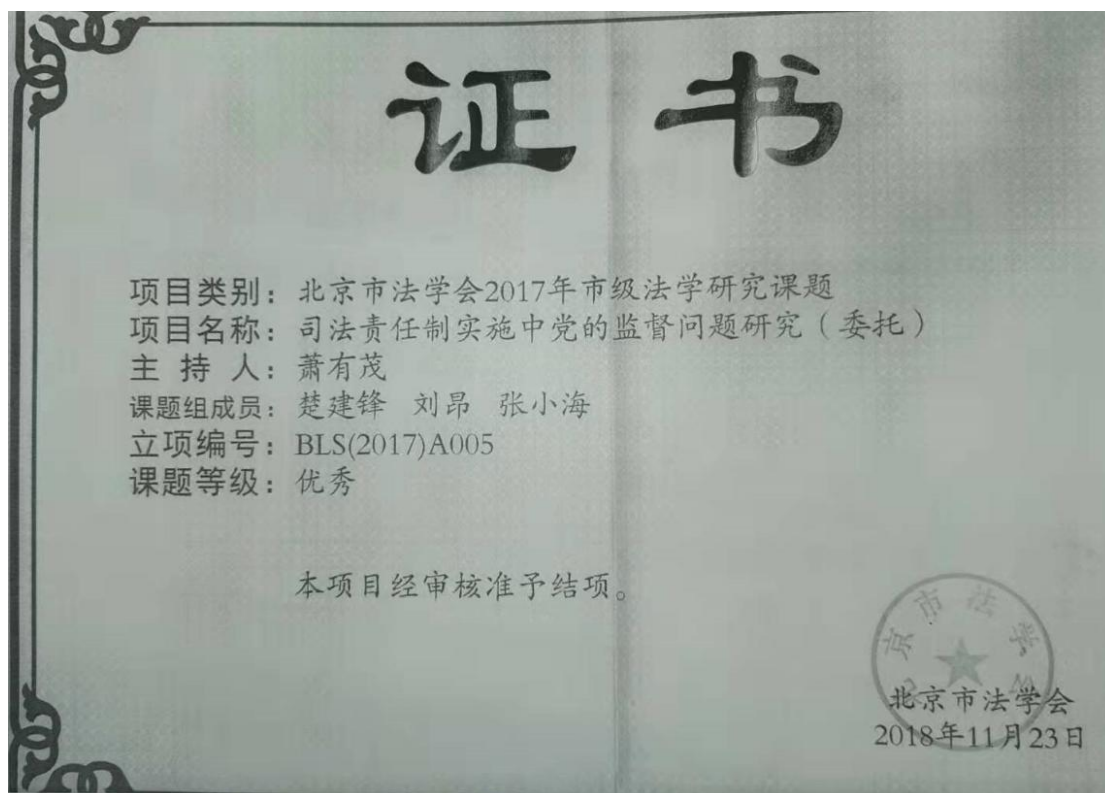 证书
项目类别：北京市法学会2017年市级法学研究课题
项目名称：司法责任制实施中党的监督问题研究（委托）
主持人：萧有茂
课题组成员：楚建锋 刘昂 张小海
立项编号：BLS(2017)A005
课题等级：优秀
本项目经审核准予结项。
北京市法学会
北京市法学会
2018年11月23日